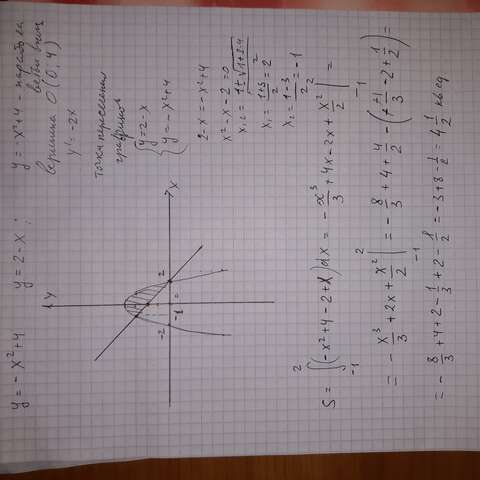 y = -x²+4   y = 2-x ;   y = -x²+4 - парабола
ветви вниз
вершина O (0, 4)
y' = -2x
точки пересечения
графиков
{ y = 2-x
y = -x²+4
2-x = -x²+4
x²-x-2=0
x₁,₂ = (1±√(1+8))/2
x₁ = (1+3)/2 = 2
x₂ = (1-3)/2 = -1
y
x
2
-2
-1
S = ∫₋₁² (-x²+4-2+x)dx = -x³/3 + 4x - 2x + x²/2 |₋₁² =
= -x³/3 + 2x + x²/2 |₋₁² = -8/3 + 4 + 4/2 - (+1/3 - 2 + 1/2) =
= -8/3 + 4 + 2 - 1/3 + 2 - 1/2 = -3 + 8 - 1/2 = 4 1/2 кв ед